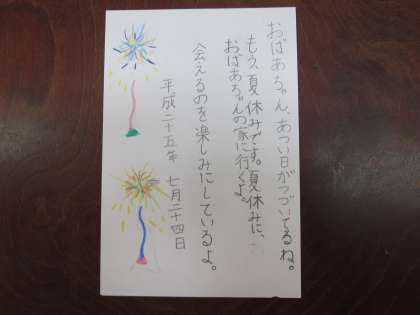 おばあちゃん、あつい日がつづいてるね。
もう、夏休みです。夏休みに、
おばあちゃんの家に行くよ。
会えるのを楽しみにしているよ。
平成二十五年 七月二十四日